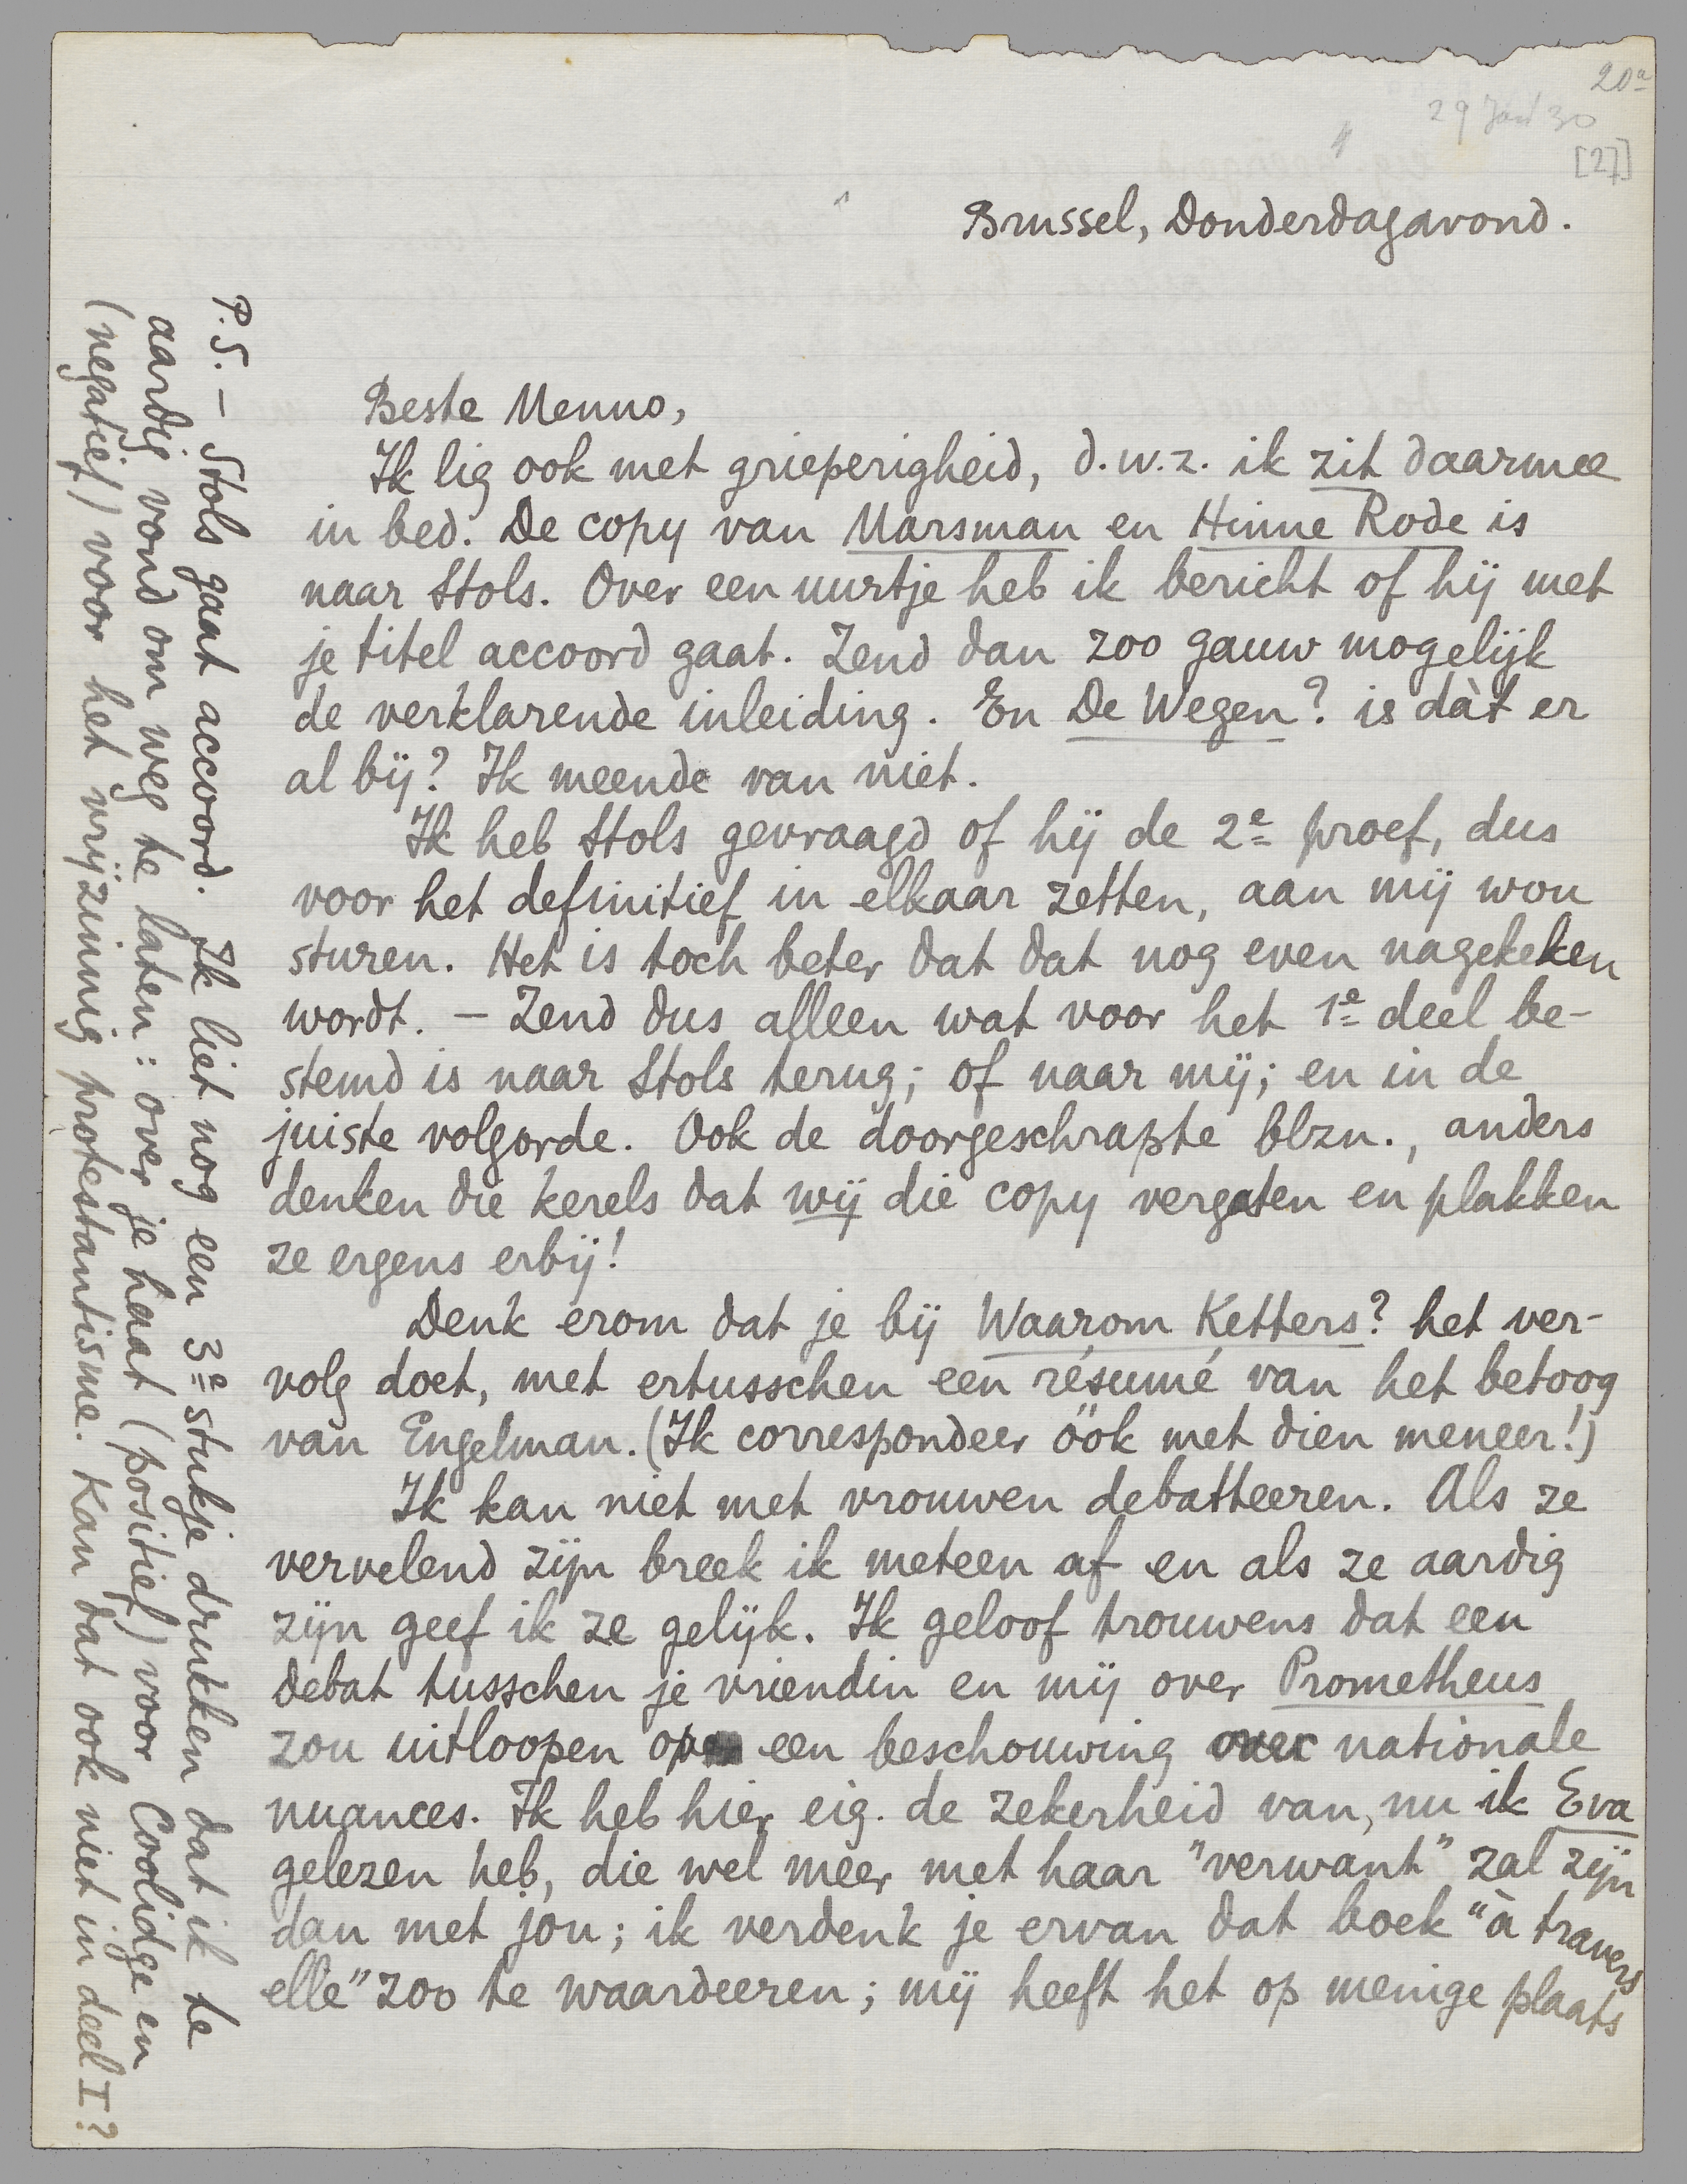 20a
29 Jan 30
[27]
Brussel, Donderdagavond.
Beste Menno,
Ik lig ook met grieperigheid, d.w.z. ik zit daarmee
in bed. De copy van Marsman en Hinne Rode is
naar Stols. Over een uurtje heb ik bericht of hij met
je titel accoord gaat. Zend dan zoo gauw mogelijk
de verklarende inleiding. En De Wegen? is dàt er
al bij? Ik meende van niet.
Ik heb Stols gevraagd of hij de 2e proef, dus
voor het definitief in elkaar zetten, aan mij wou
sturen. Het is toch beter dat dat nog even nagekeken
wordt. – Zend dus alleen wat voor het 1e deel be-
stemd is naar Stols terug; of naar mij; en in de
juiste volgorde. Ook de doorgeschrapte blzn., anders
denken die kerels dat wij die copy vergaten en plakken
ze ergens erbij!
Denk erom dat je bij Waarom Ketters? het ver-
volg doet, met ertusschen een résumé van het betoog
van Engelman. (Ik correspondeer óók met dien meneer!)
Ik kan niet met vrouwen debatteeren. Als ze
vervelend zijn breek ik meteen af en als ze aardig
zijn geef ik ze gelijk. Ik geloof trouwens dat een
debat tusschen je vriendin en mij over Prometheus
zou uitloopen op een beschouwing over nationale
nuances. Ik heb hier eig. de zekerheid van, nu ik Eva
gelezen heb, die wel meer met haar "verwant" zal zijn
dan met jou; ik verdenk je ervan dat boek "à travers
elle" zoo te waardeeren; mij heeft het op menige plaats
P.S. – Stols gaat accoord. Ik liet nog een 3e stukje drukken dat ik te
aardig vond om weg te laten: over je haat (positief) voor Coolidge en
(negatief) voor het vrijzinnig protestantisme. Kan dat ook niet in deel I?